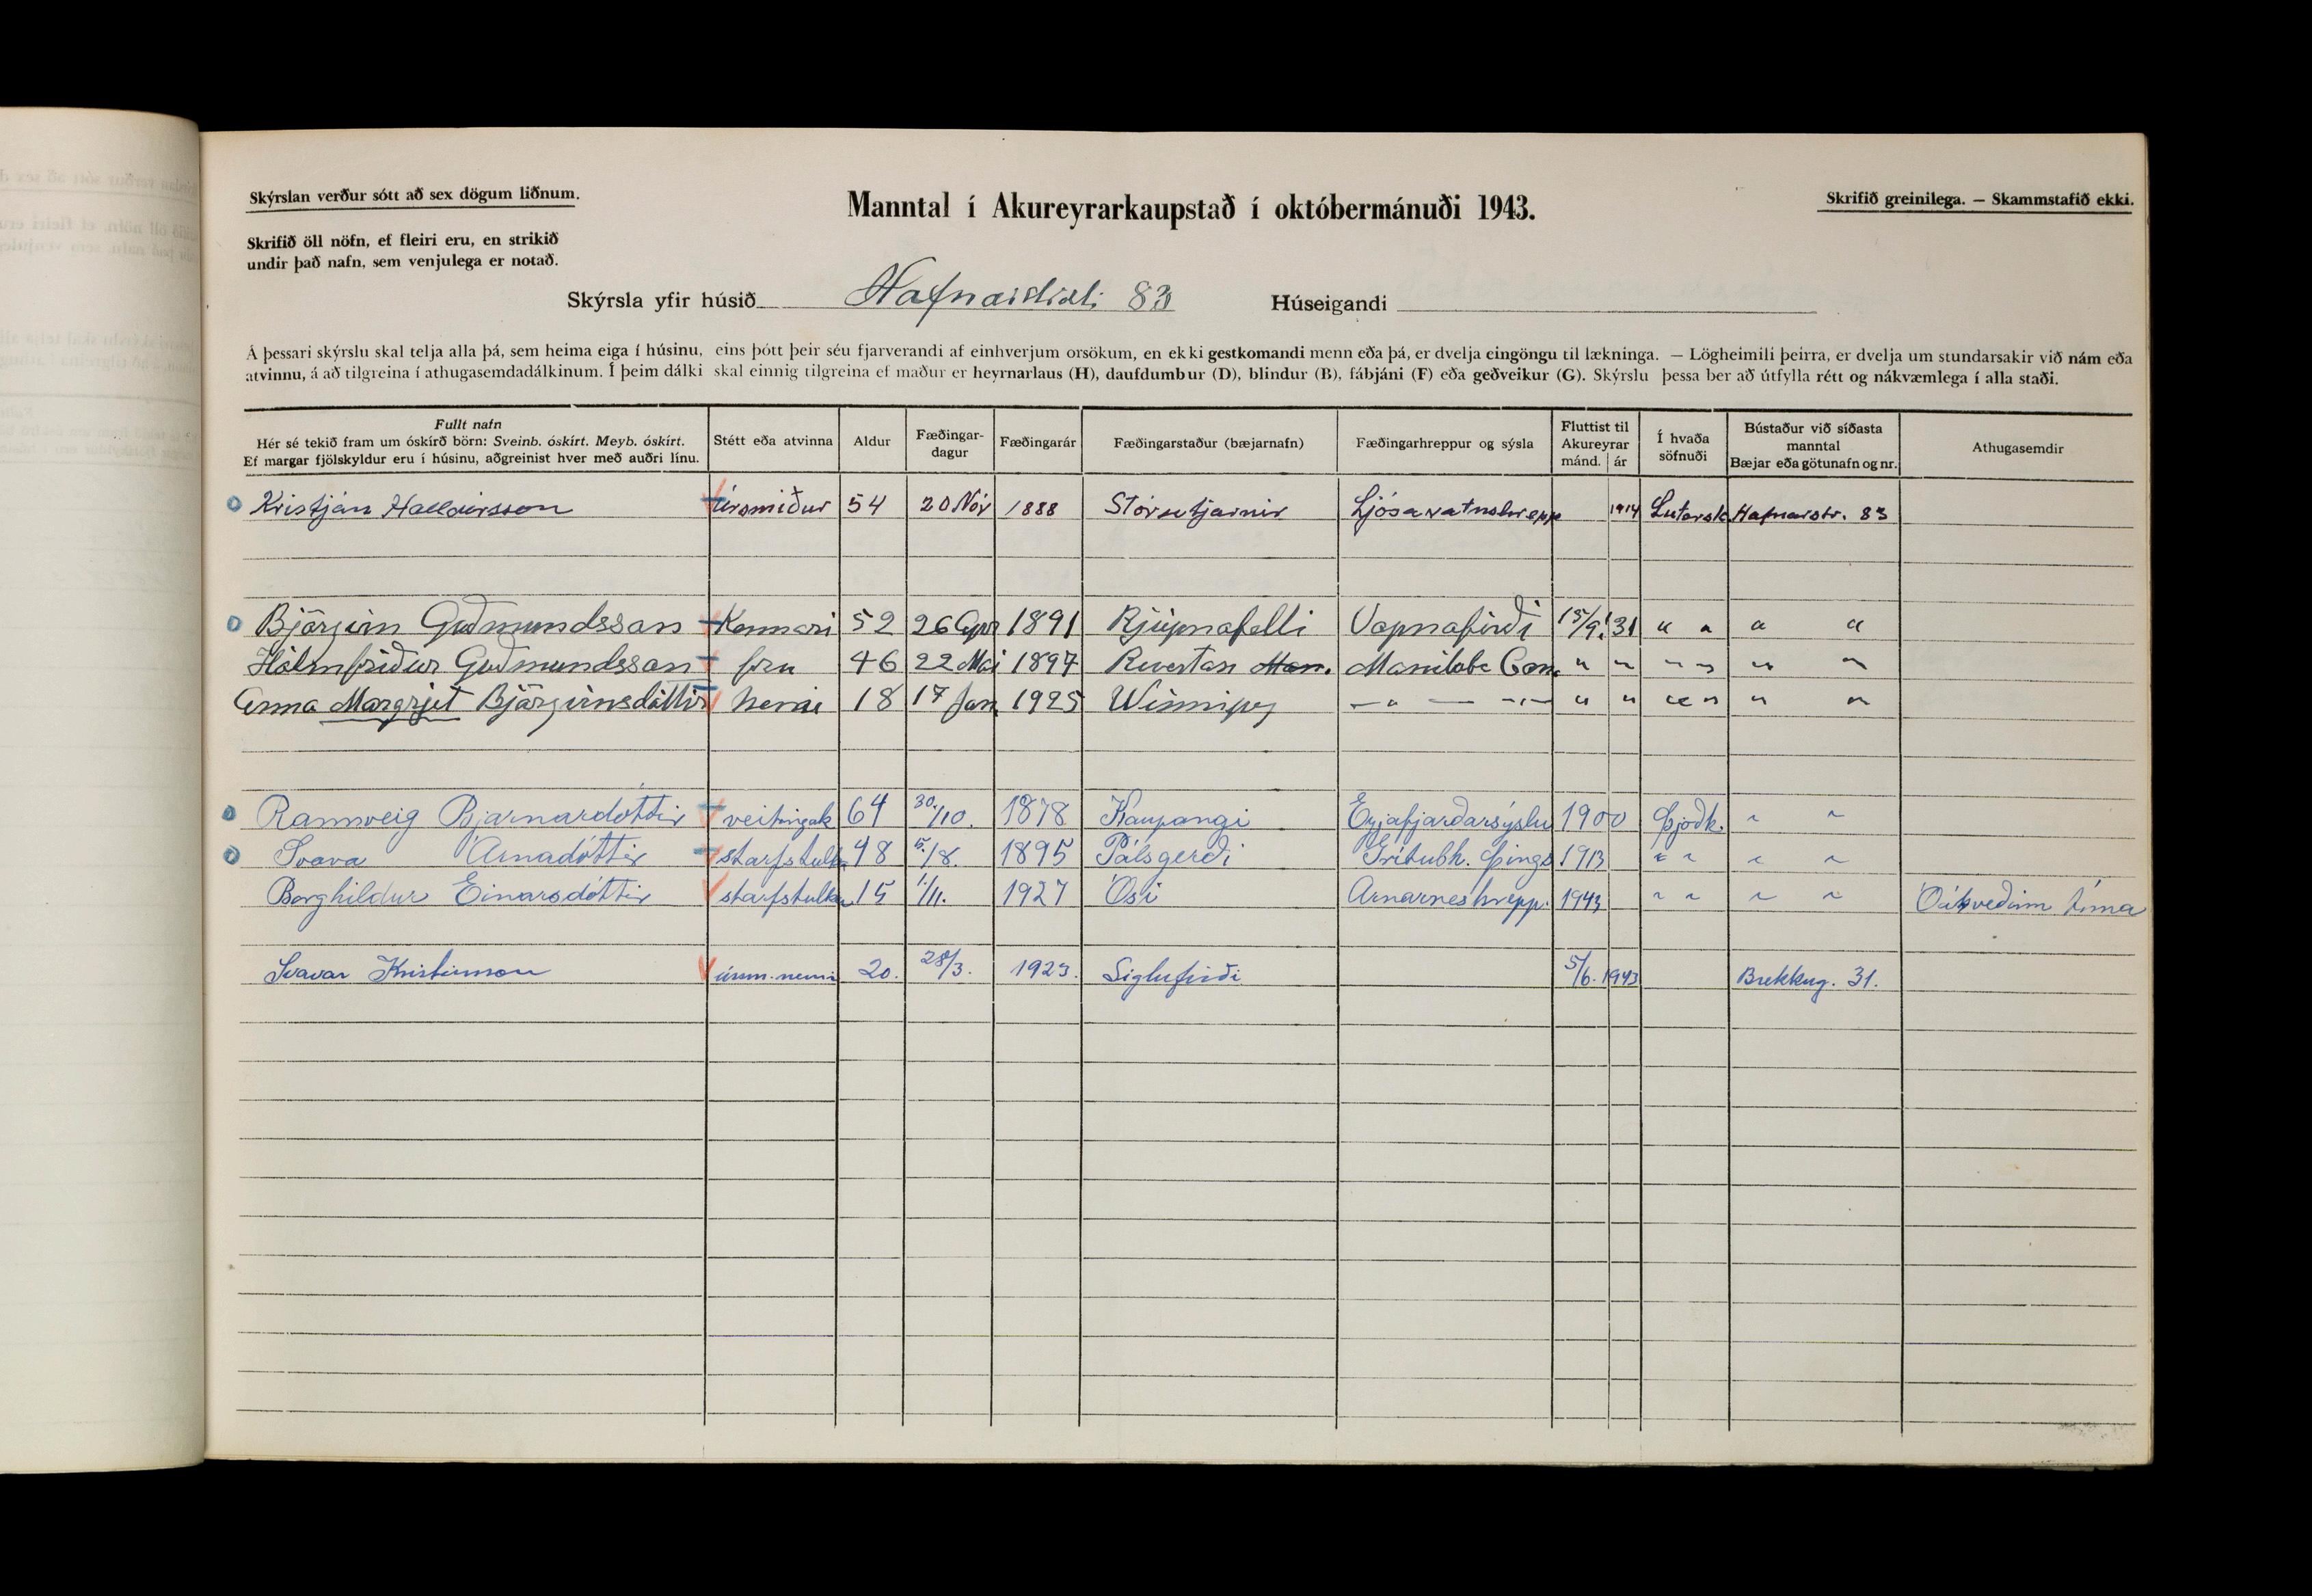 Skýrslan verður sótt að sex dögum liðnum.
Manntal í Akureyrarkaupstað í októbermánuði 1943.
Skrifið greinilega. — Skammstafið ekki.
Skrifið öll nöfn, ef fleiri eru, en strikið
undir það nafn, sem venjulega er notað.
Skýrsla yfir húsið Hafnarstræti 83 Húseigandi
Á þessari skýrslu skal telja alla þá, sem heima eiga í húsinu, eins þótt þeir séu fjarverandi af einhverjum orsökum, en ekki gestkomandi menn eða þá, er dvelja eingöngu til lækninga. — Lögheimili þeirra, er dvelja um stundarsakir við nám eða
atvinnu, á að tilgreina í athugasemdadálkinum. Í þeim dálki skal einnig tilgreina ef maður er heyrnarlaus (H), daufdumbur (D), blindur (B), fábjáni (F) eða geðveikur (G). Skýrslu þessa ber að útfylla rétt og nákvæmlega í alla staði.
Fullt nafn
Hér sé tekið fram um óskírð börn: Sveinb. óskírt. Meyb. óskírt.
Ef margar fjölskyldur eru í húsinu, aðgreinist hver með auðri línu.
Stétt eða atvinna
Aldur
Fæðingar-
dagur
Fæðingarár
Fæðingarstaður (bæjarnafn)
Fæðingarhreppur og sýsla
Fluttist til
Akureyrar
mánd. ár
Í hvaða
söfnuði
Bústaður við síðasta
manntal
Bæjar eða götunafn og nr.
Athugasemdir
Kristján Halldórsson úrsmiður 54 20 Nóv 1888 Stórutjarnir Ljósavatnshrepp 1914 Lutersk Hafnarstr. 83
Björgvin Guðmundsson Kennari 52 26 Apr 1891 Rjúpnafelli Vopnafirði 15/9. 31 " " " "
Hólmfríður Guðmundsson frú 46 22 Mai 1897 Riverton Man. Manitoba Can. " " " " " "
Anna Margrjet Björgvinsdóttir nemi 18 17 Jan 1925 Winnipeg — " — — " — " " " " " "
Rannveig Bjarnardóttir veitingak 64 30./10. 1878 Kaupangi Eyjafjarðarsýslu 1900 Þjóðk. " "
Svava Árnadóttir starfstulka 48 5./8. 1895 Pálsgerði Grítubh. Þings 1913 " " " "
Borghildur Einarsdóttir starfstulka 15 1/11. 1927 Ósi Arnarneshrepp. 1943 " " " " Óákveðinn tíma
Svavar Kristinnson úrsm. nemi 20. 28/3. 1923. Siglufirði 5/6. 1943 Brekkug. 31.